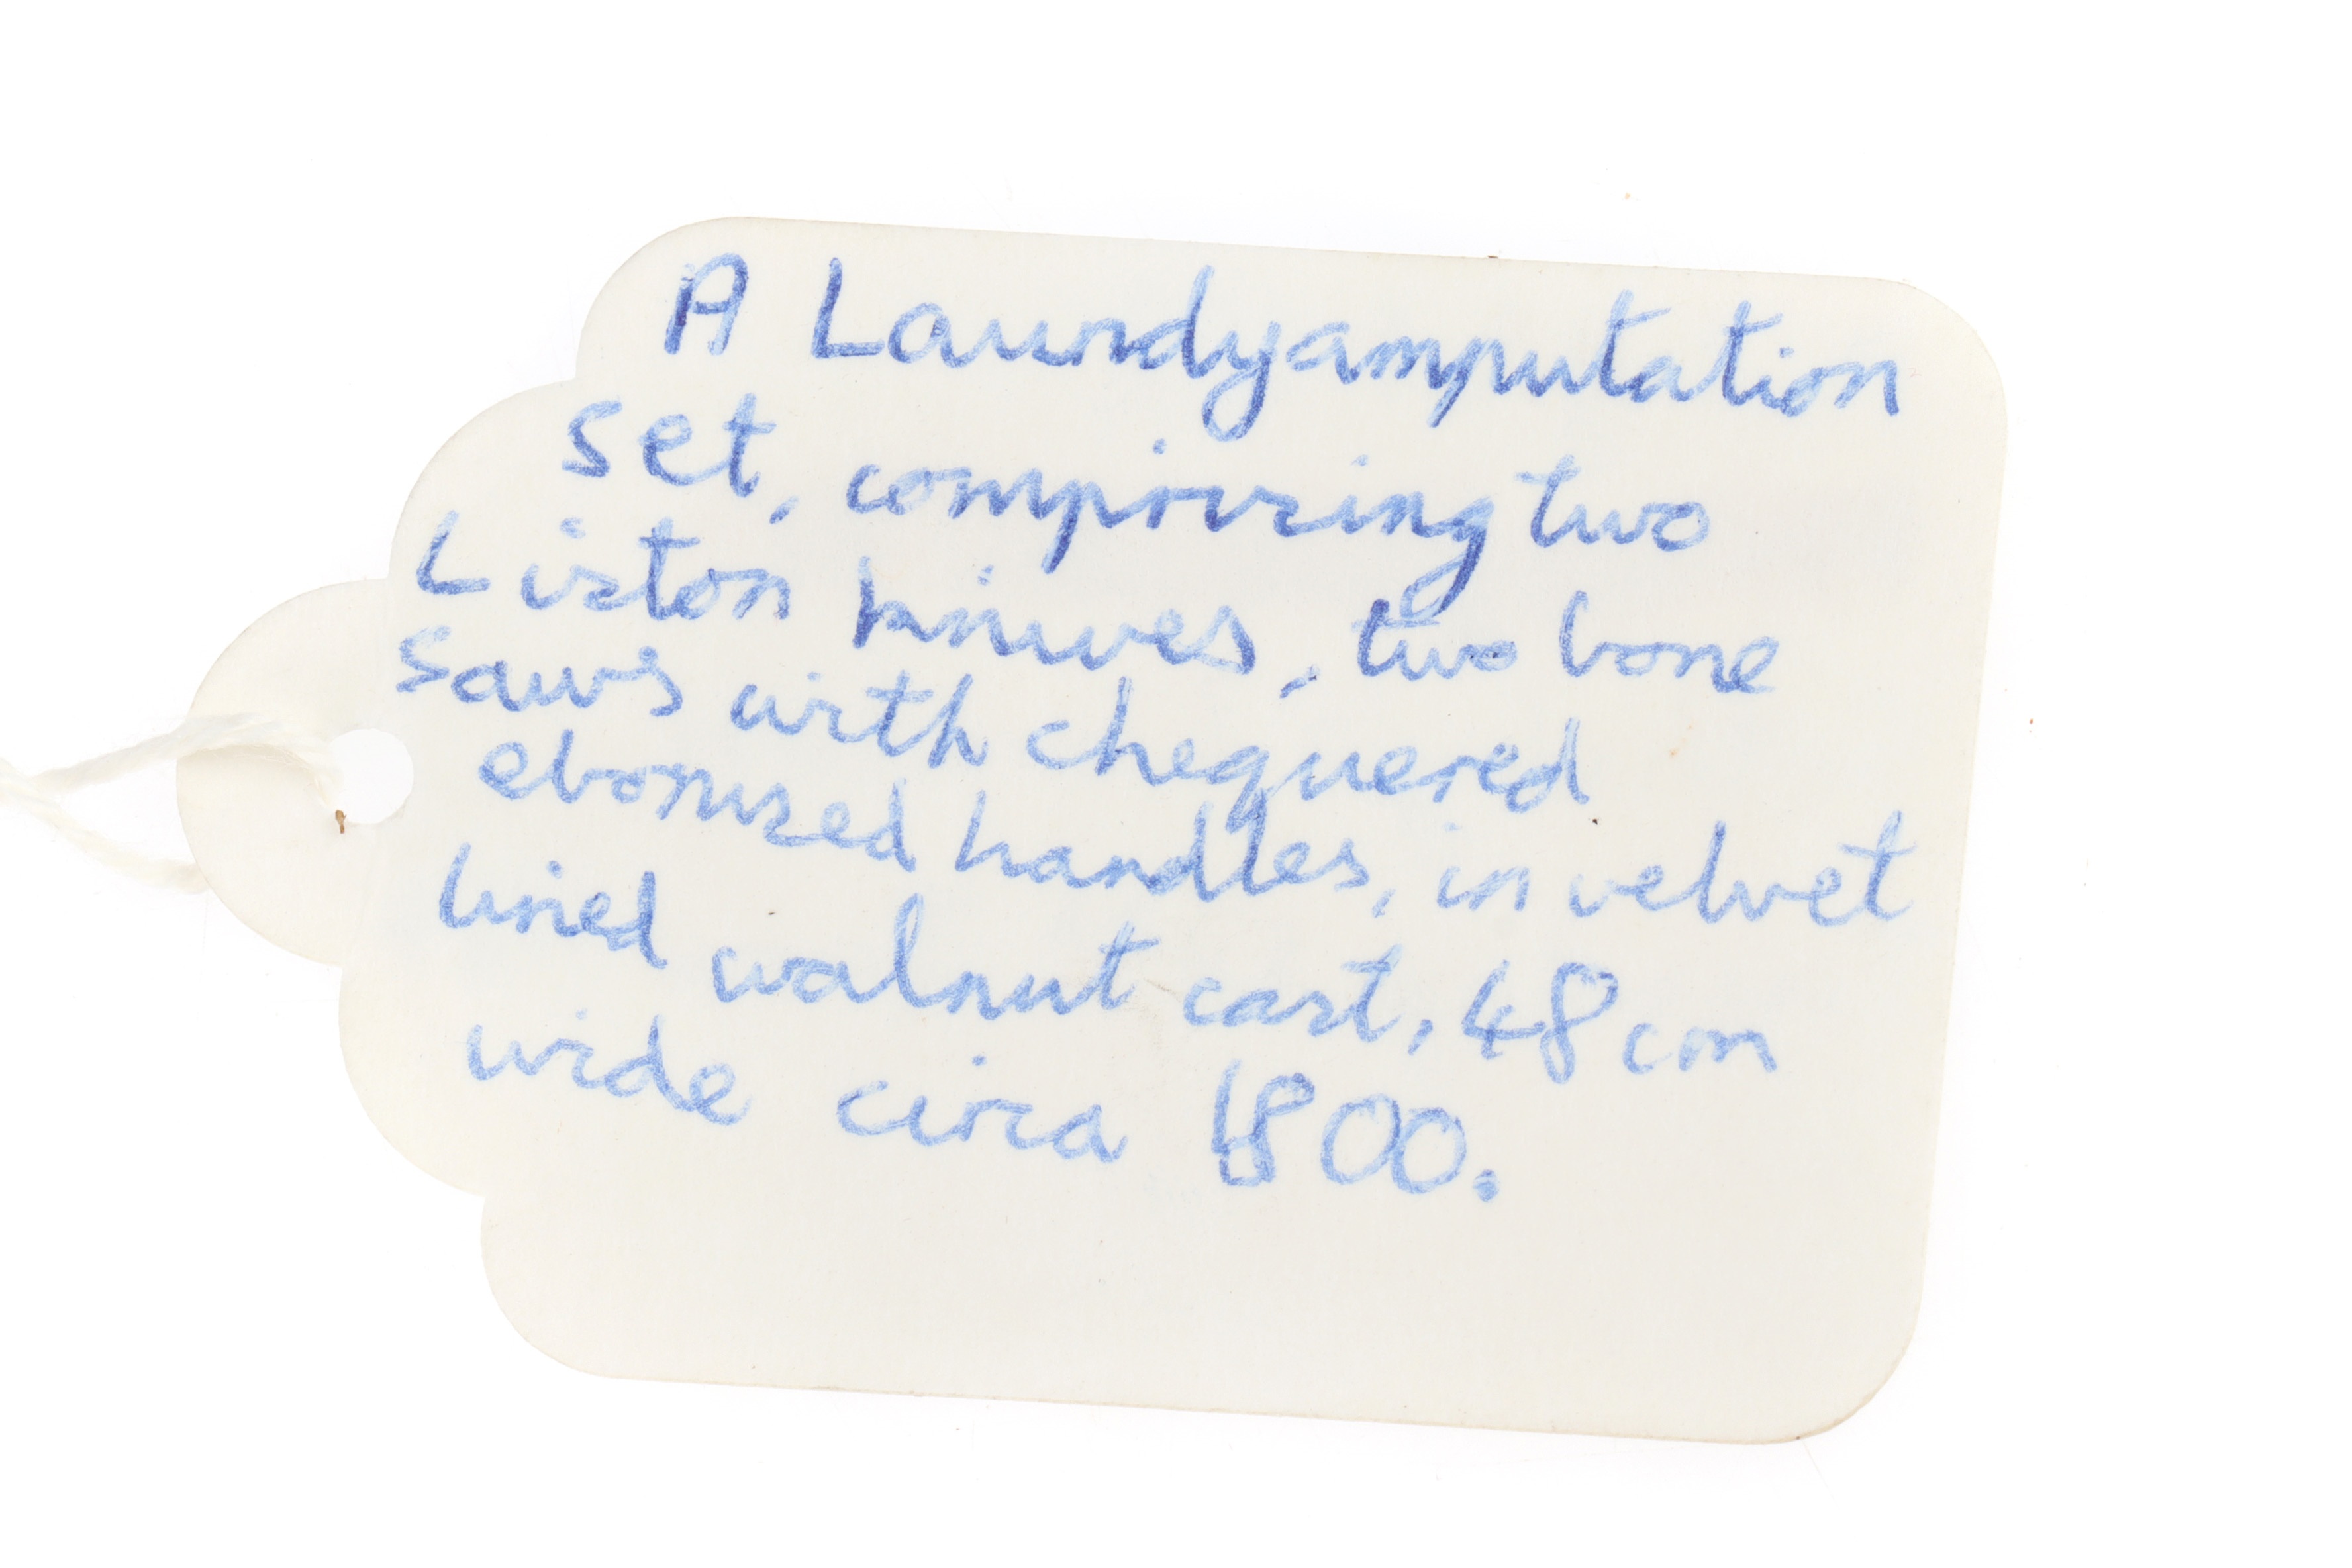 A Laundy amputation
set, comprising two
Liston knives, two bone
saws with chequered
ebonised handles, in velvet
lined walnut cast, 48cm
wide circa 1800.